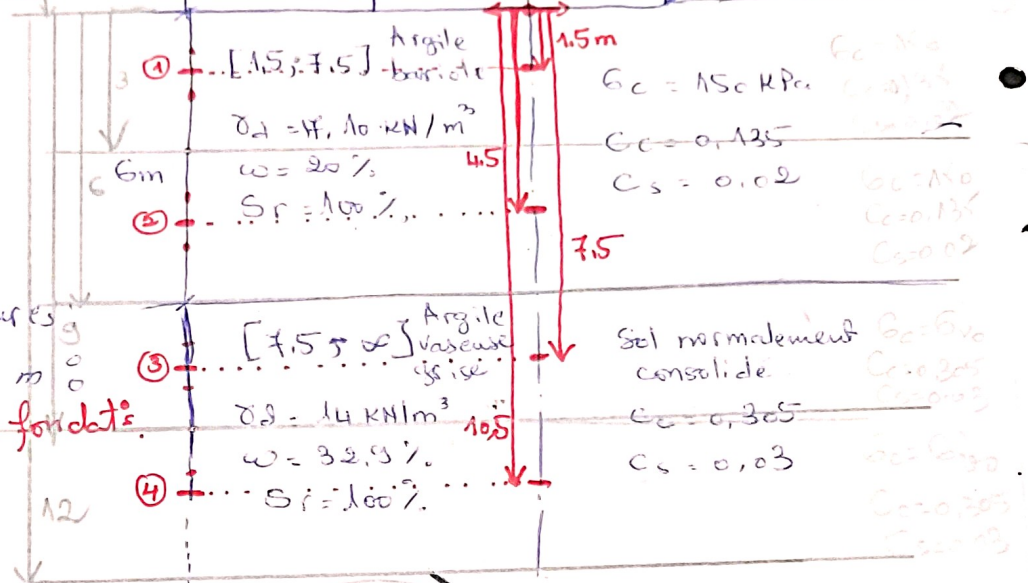 1.5m
① [1,5 ; 7.5] Argile
σc = 150 KPa
3
γd = 17,10 KN/m³
Cc = 0,135
6 6m
w = 20 %
4.5
Cs = 0.02
② Sr = 100 %
7.5
[7.5 ; ∞] Argile
vaseuse
grise
Sol normalement
consolidé
9
③
m
fondat°s
γd = 14 KN/m³
10,5
Cc = 0,305
w = 32,9 %
Cs = 0,03
④ Sr = 100 %
12